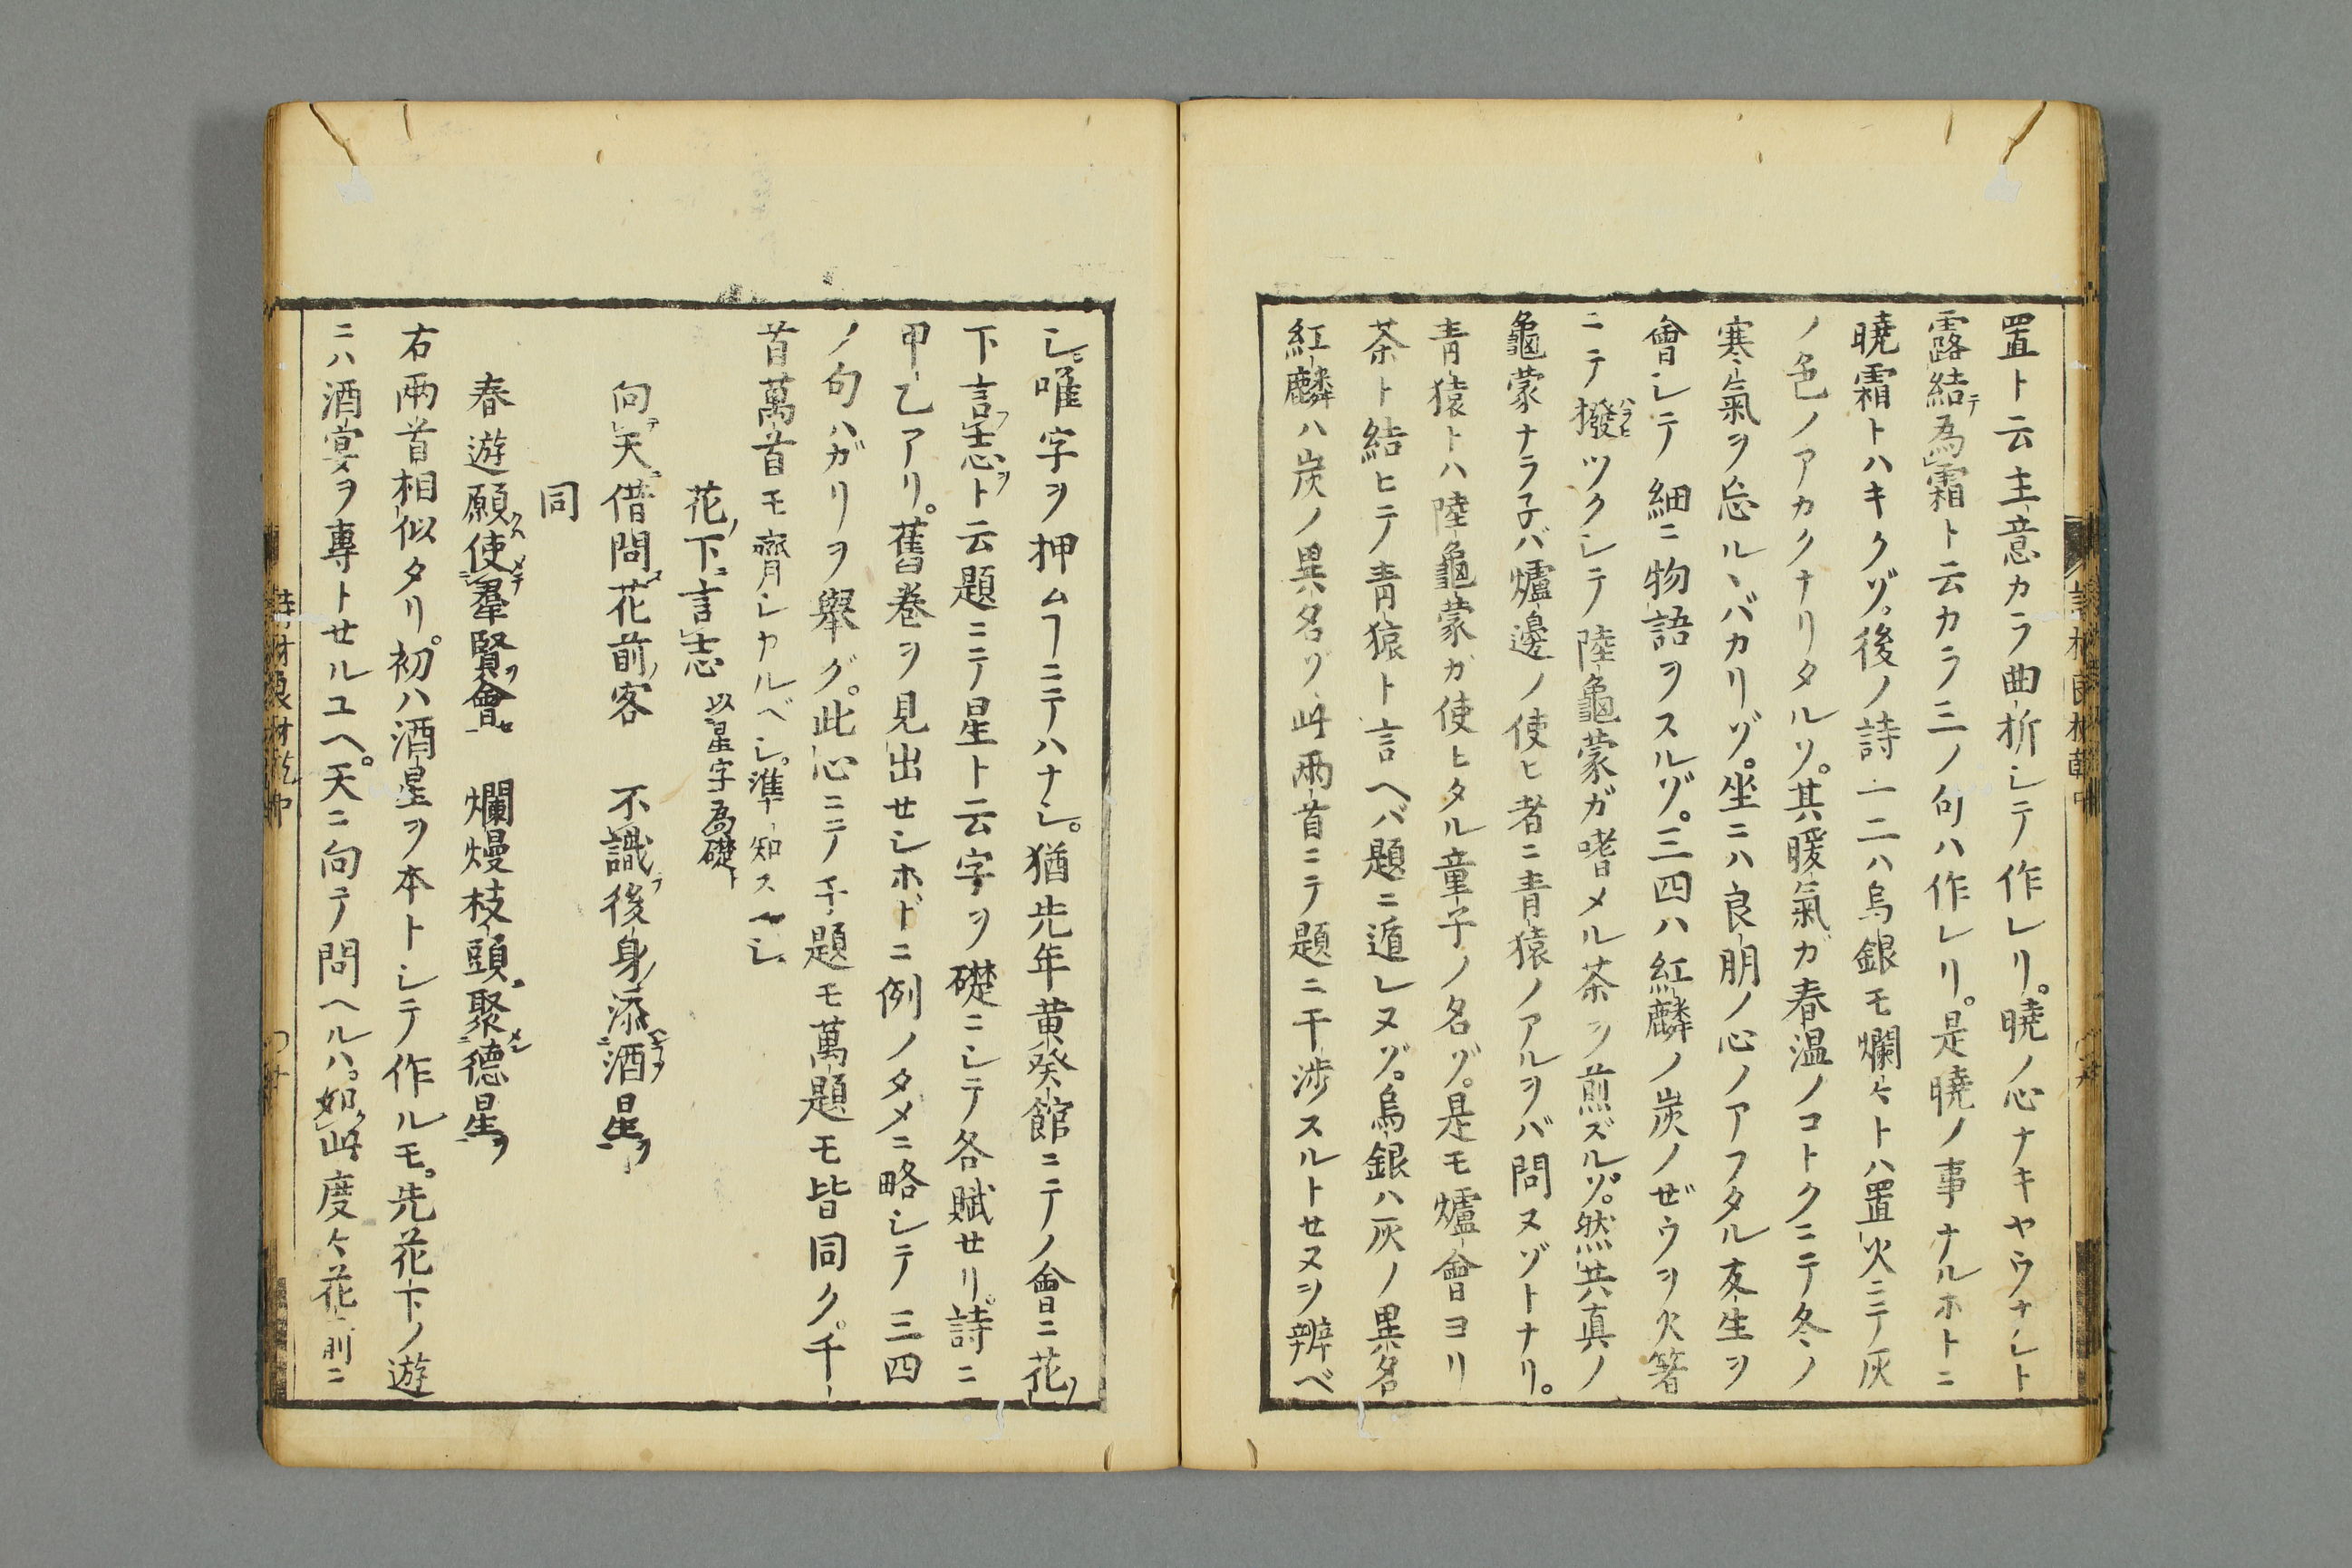 置ト云主意カラ曲折シテ作レリ。曉ノ心ナキヤウナレト
露結テ為霜ト云カラ三ノ句ハ作レリ。是曉ノ事ナルホトニ
曉霜トハキクゾ。後ノ詩一二ハ烏銀モ爛々トハ置火ニテ灰
ノ色ノアカクナリタルソ。其暖氣ガ春温ノコトクニテ冬ノ
寒氣ヲ忘ルヽバカリゾ。坐ニハ良朋ノ心ノアフタル友生ヲ
會シテ細ニ物語ヲスルゾ。三四ハ紅麟ノ炭ノゼウヲ火箸
ニテ撥ツクシテ陸龜蒙ガ嗜メル茶ヲ煎ズルゾ。然共真ノ
龜蒙ナラ子バ爐邊ノ使ヒ者ニ青猿ノアルヲバ問ヌゾトナリ。
青猿トハ陸龜蒙ガ使ヒタル童子ノ名ゾ。是モ爐會ヨリ
茶ト結ヒテ青猿ト言ヘバ題ニ遁レヌゾ。烏銀ハ灰ノ異名
紅麟ハ炭ノ異名ゾ此兩首ニテ題ニ干渉スルトセヌヲ辨ベ
シ。唯字ヲ押ムヿニテハナシ。猶先年黄葵館ニテノ會ニ花ノ
下言志ヲト云題ニテ星ト云字ヲ礎ニシテ各賦セリ。詩ニ
甲乙アリ。舊巻ヲ見出セシホドニ例ノタメニ略シテ三四
ノ句ハガリヲ舉グ。此心ニテノ千題モ萬題モ皆同ク。千
首萬首モ齊シカルベシ。準知スヘシ
花ノ下ニ言志 以星字為礎ト
向テ天ニ借問ス花前ノ客 不識ラ後身ノ添酒星ヲ
同
春遊願クハ使メテ羣賢ヲ會セ 爛熳枝頭聚メン德星ヲ
右兩首相似タリ。初ハ酒星ヲ本トシテ作ルモ。先花下ノ遊
ニハ酒宴ヲ專トセルユヘ。天ニ向テ問ヘルハ。如ク此度々花前ニ